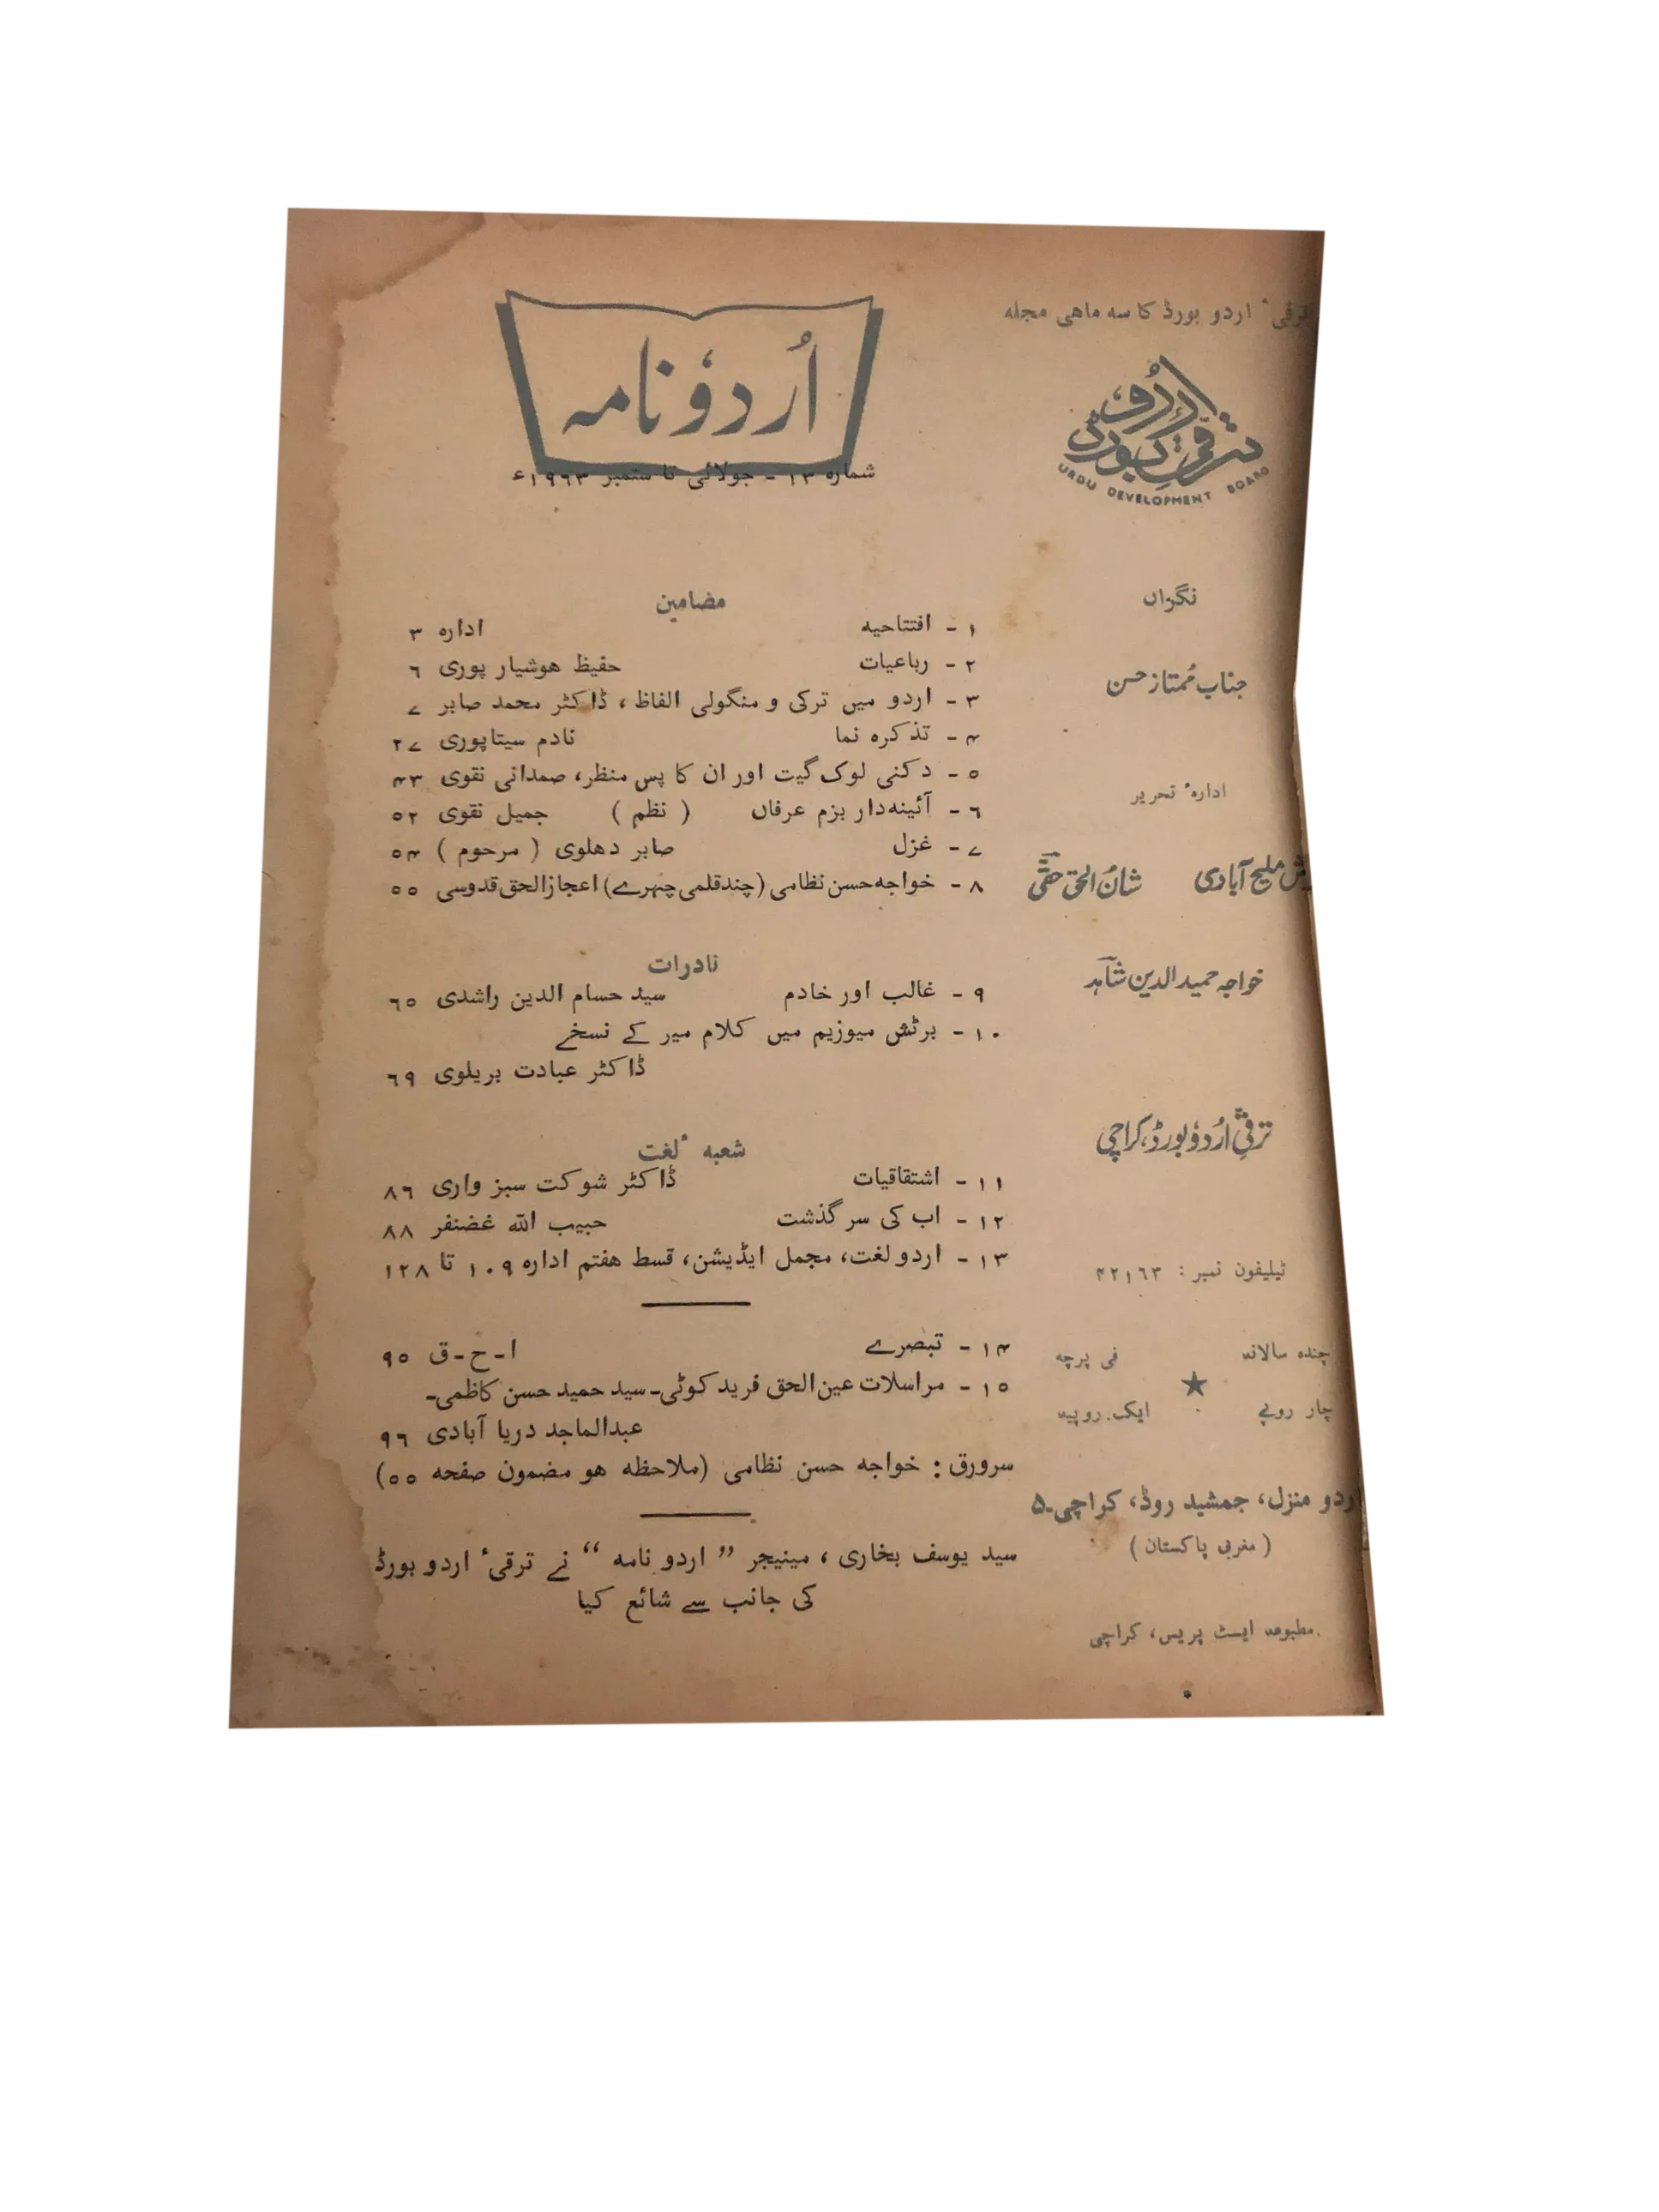 ترقیٔ اردو بورڈ کا سہ ماہی مجلہ
ترقیٔ اردو بورڈ
URDU DEVELOPMENT BOARD
نگراں
جناب مُمتاز حسن
ادارۂ تحریر
ملیح آبادی شانُ الحق حقّی
خواجہ حمید الدین شاہد
ترقیٔ اُردو بورڈ، کراچی
ٹیلیفون نمبر : ۴۲۱۶۳
چندہ سالانہ فی پرچہ
چار روپے ★ ایک روپیہ
اردو منزل، جمشید روڈ، کراچی۔۵
( مغربی پاکستان )
مطبوعہ ایسٹ پریس، کراچی
اُردو نامہ
شمارہ ۱۳ - جولائی تا ستمبر ۱۹۶۳ء
مضامین
۱ - افتتاحیہ ادارہ ۳
۲ - رباعیات حفیظ ہوشیار پوری ۶
۳ - اردو میں ترکی و منگولی الفاظ ، ڈاکٹر محمد صابر ۷
۴ - تذکرہ نما نادم سیتاپوری ۲۷
۵ - دکنی لوک گیت اور ان کا پس منظر، صمدانی نقوی ۴۳
۶ - آئینہ‌دار بزم عرفاں ( نظم ) جمیل نقوی ۵۲
۷ - غزل صابر دہلوی ( مرحوم ) ۵۴
۸ - خواجہ حسن نظامی (چند قلمی چہرے) اعجاز الحق قدوسی ۵۵
نادرات
۹ - غالب اور خادم سید حسام الدین راشدی ۶۵
۱۰ - برٹش میوزیم میں کلام میر کے نسخے
ڈاکٹر عبادت بریلوی ۶۹
شعبۂ لغت
۱۱ - اشتقاقیات ڈاکٹر شوکت سبز واری ۸۶
۱۲ - اب کی سرگذشت حبیب اللہ غضنفر ۸۸
۱۳ - اردو لغت، مجمل ایڈیشن، قسط ہفتم ادارہ ۱۰۹ تا ۱۲۸
۱۴ - تبصرے ا-ح-ق ۹۵
۱۵ - مراسلات عین‌الحق فرید کوٹی۔ سید حمید حسن کاظمی۔
عبدالماجد دریا آبادی ۹۶
سرورق : خواجہ حسن نظامی (ملاحظہ ہو مضمون صفحہ ۵۵)
سید یوسف بخاری ، مینیجر ” اردو نامہ “ نے ترقیٔ اردو بورڈ
کی جانب سے شائع کیا